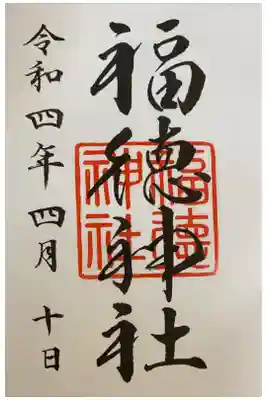 福徳神社
福德
神社
令和四年四月十日